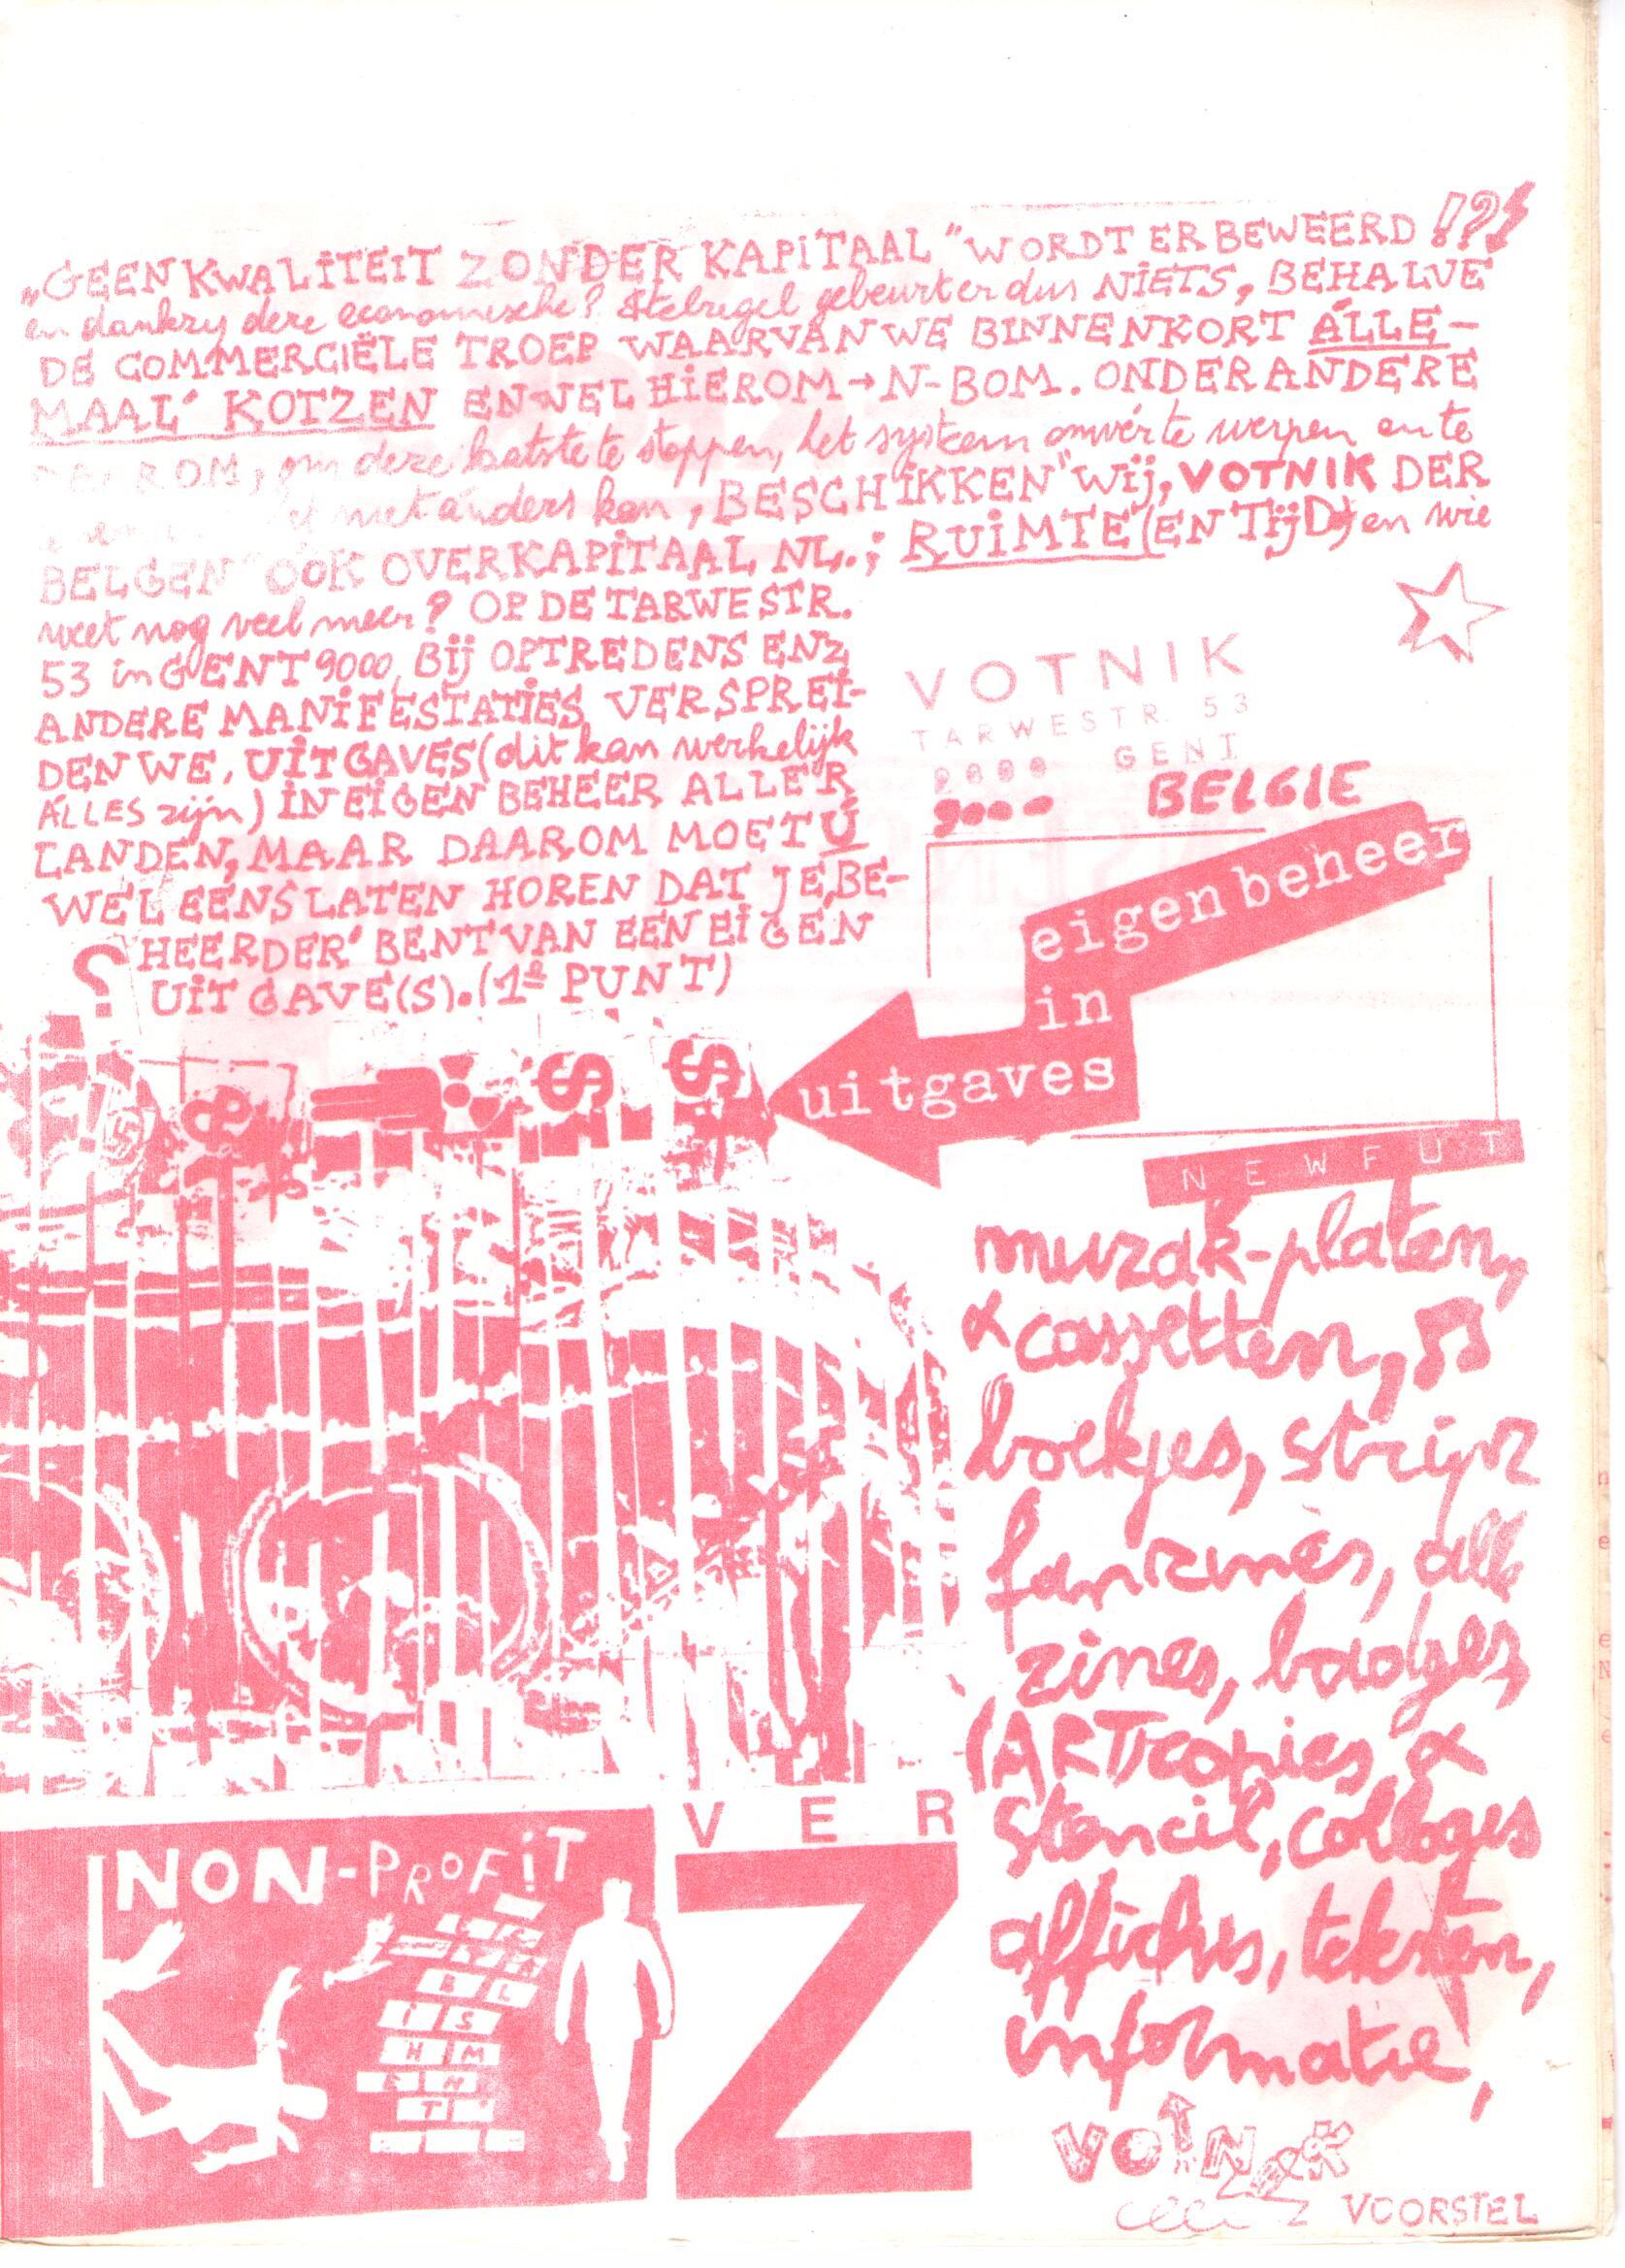 „GEEN KWALITEIT ZONDER KAPITAAL" WORDT ER BEWEERD !?
en dankzij deze economische? stelregel gebeurt er dus NIETS, BEHALVE
DE COMMERCIËLE TROEP WAARVAN WE BINNENKORT ÁLLE-
MAAL' KOTZEN EN WEL HIEROM → N-BOM. ONDER ANDERE
DAAROM, om deze laatste te stoppen, het systeem omver te werpen en te
niet anders kan, BESCHIKKEN "WIJ, VOTNIK DER
BELGEN" OOK OVER KAPITAAL, NL.; RUIMTE (EN TIJD) en wie
weet nog veel meer? OP DE TARWESTR.
53 in GENT 9000, BIJ OPTREDENS ENZ
ANDERE MANIFESTATIES VERSPREI-
DEN WE, UITGAVES (dit kan werkelijk
ÁLLES zijn) IN EIGEN BEHEER ALLER
LANDEN, MAAR DAAROM MOET Ú
WEL EENS LATEN HOREN DAT JE, BE-
HEERDER' BENT VAN EEN EIGEN
UITGAVE(S). (1e PUNT)
?
VOTNIK
TARWESTR. 53
9000 GENT
9000 BELGIE
eigen beheer
in
uitgaves
NEWFUT
$ $
muzak-platen,
& cassetten,
boekjes, strips
fanzines, alle
zines, badges
(ART)copies &
stencil, collages
affiches, teksten,
informatie,
VOTNIK
VOORSTEL
VER
Z
NON-PROFIT
B L
I S
H M
E N
T